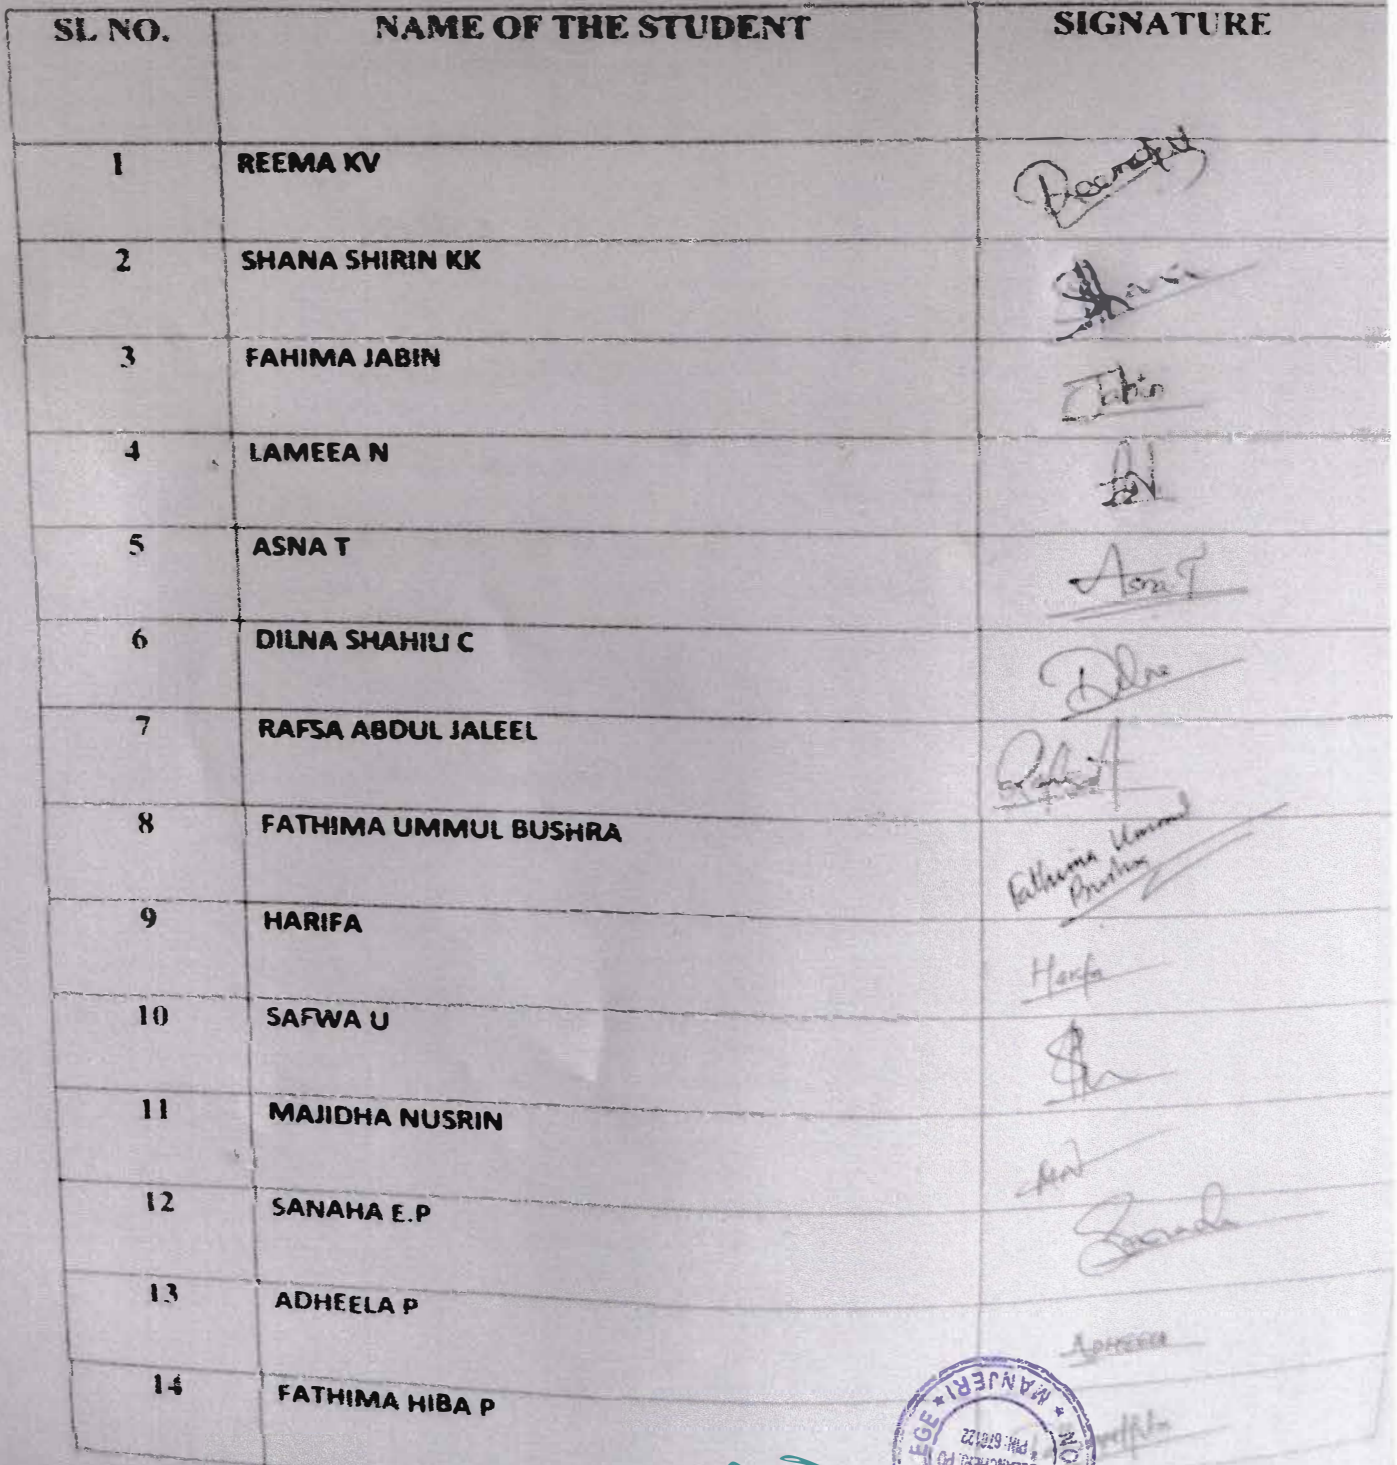 SL NO. NAME OF THE STUDENT SIGNATURE
1 REEMA KV Reemakv
2 SHANA SHIRIN KK Shana
3 FAHIMA JABIN Jabin
4 LAMEEA N
5 ASNA T Asna T
6 DILNA SHAHILI C Dilna
7 RAFSA ABDUL JALEEL
8 FATHIMA UMMUL BUSHRA Fathima Ummul
Bushra
9 HARIFA Harifa
10 SAFWA U
11 MAJIDHA NUSRIN
12 SANAHA E.P
13 ADHEELA P ADHEELA
14 FATHIMA HIBA P
EGE * MANJERI *
PIN: 676122